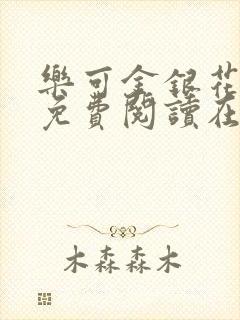 樂可金銀花
免費閱讀在
木森森木